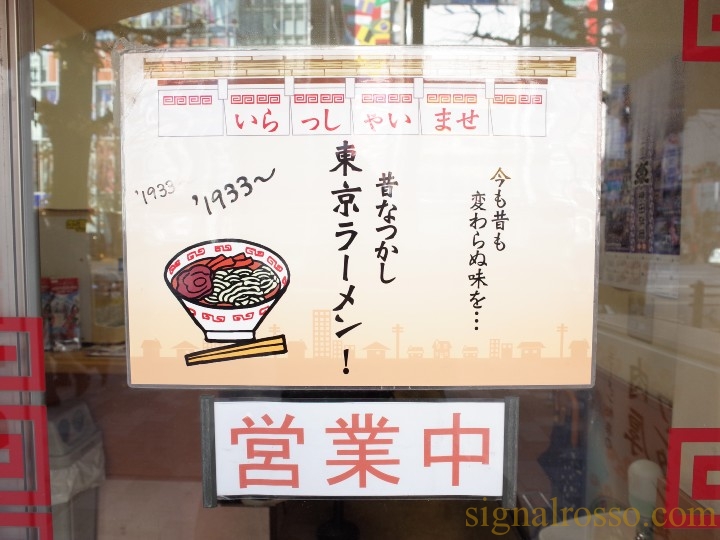 いらっしゃいませ
今も昔も
変わらぬ味を…
昔なつかし
東京ラーメン！
'1933
'1933～
営業中
signalrosso.com